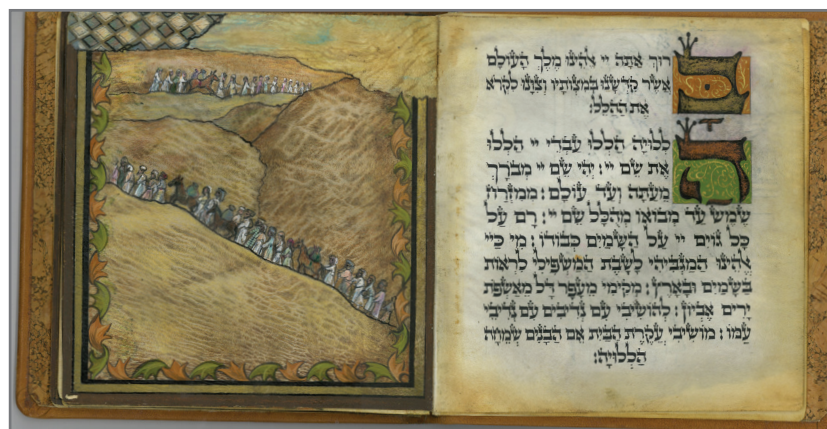 בָּרוּךְ אַתָּה יְיָ אֱלֹהֵינוּ מֶלֶךְ הָעוֹלָם
אֲשֶׁר קִדְּשָׁנוּ בְּמִצְוֹתָיו וְצִוָּנוּ לִקְרֹא
אֶת הַהַלֵּל:
הַלְלוּיָהּ הַלְלוּ עַבְדֵי יְיָ הַלְלוּ
אֶת שֵׁם יְיָ: יְהִי שֵׁם יְיָ מְבֹרָךְ
מֵעַתָּה וְעַד עוֹלָם: מִמִּזְרַח
שֶׁמֶשׁ עַד מְבוֹאוֹ מְהֻלָּל שֵׁם יְיָ: רָם עַל
כָּל גּוֹיִם יְיָ עַל הַשָּׁמַיִם כְּבוֹדוֹ: מִי כַּיְיָ
אֱלֹהֵינוּ הַמַּגְבִּיהִי לָשָׁבֶת הַמַּשְׁפִּילִי לִרְאוֹת
בַּשָּׁמַיִם וּבָאָרֶץ: מְקִימִי מֵעָפָר דָּל מֵאַשְׁפֹּת
יָרִים אֶבְיוֹן: לְהוֹשִׁיבִי עִם נְדִיבִים עִם נְדִיבֵי
עַמּוֹ: מוֹשִׁיבִי עֲקֶרֶת הַבַּיִת אֵם הַבָּנִים שְׂמֵחָה
הַלְלוּיָהּ: